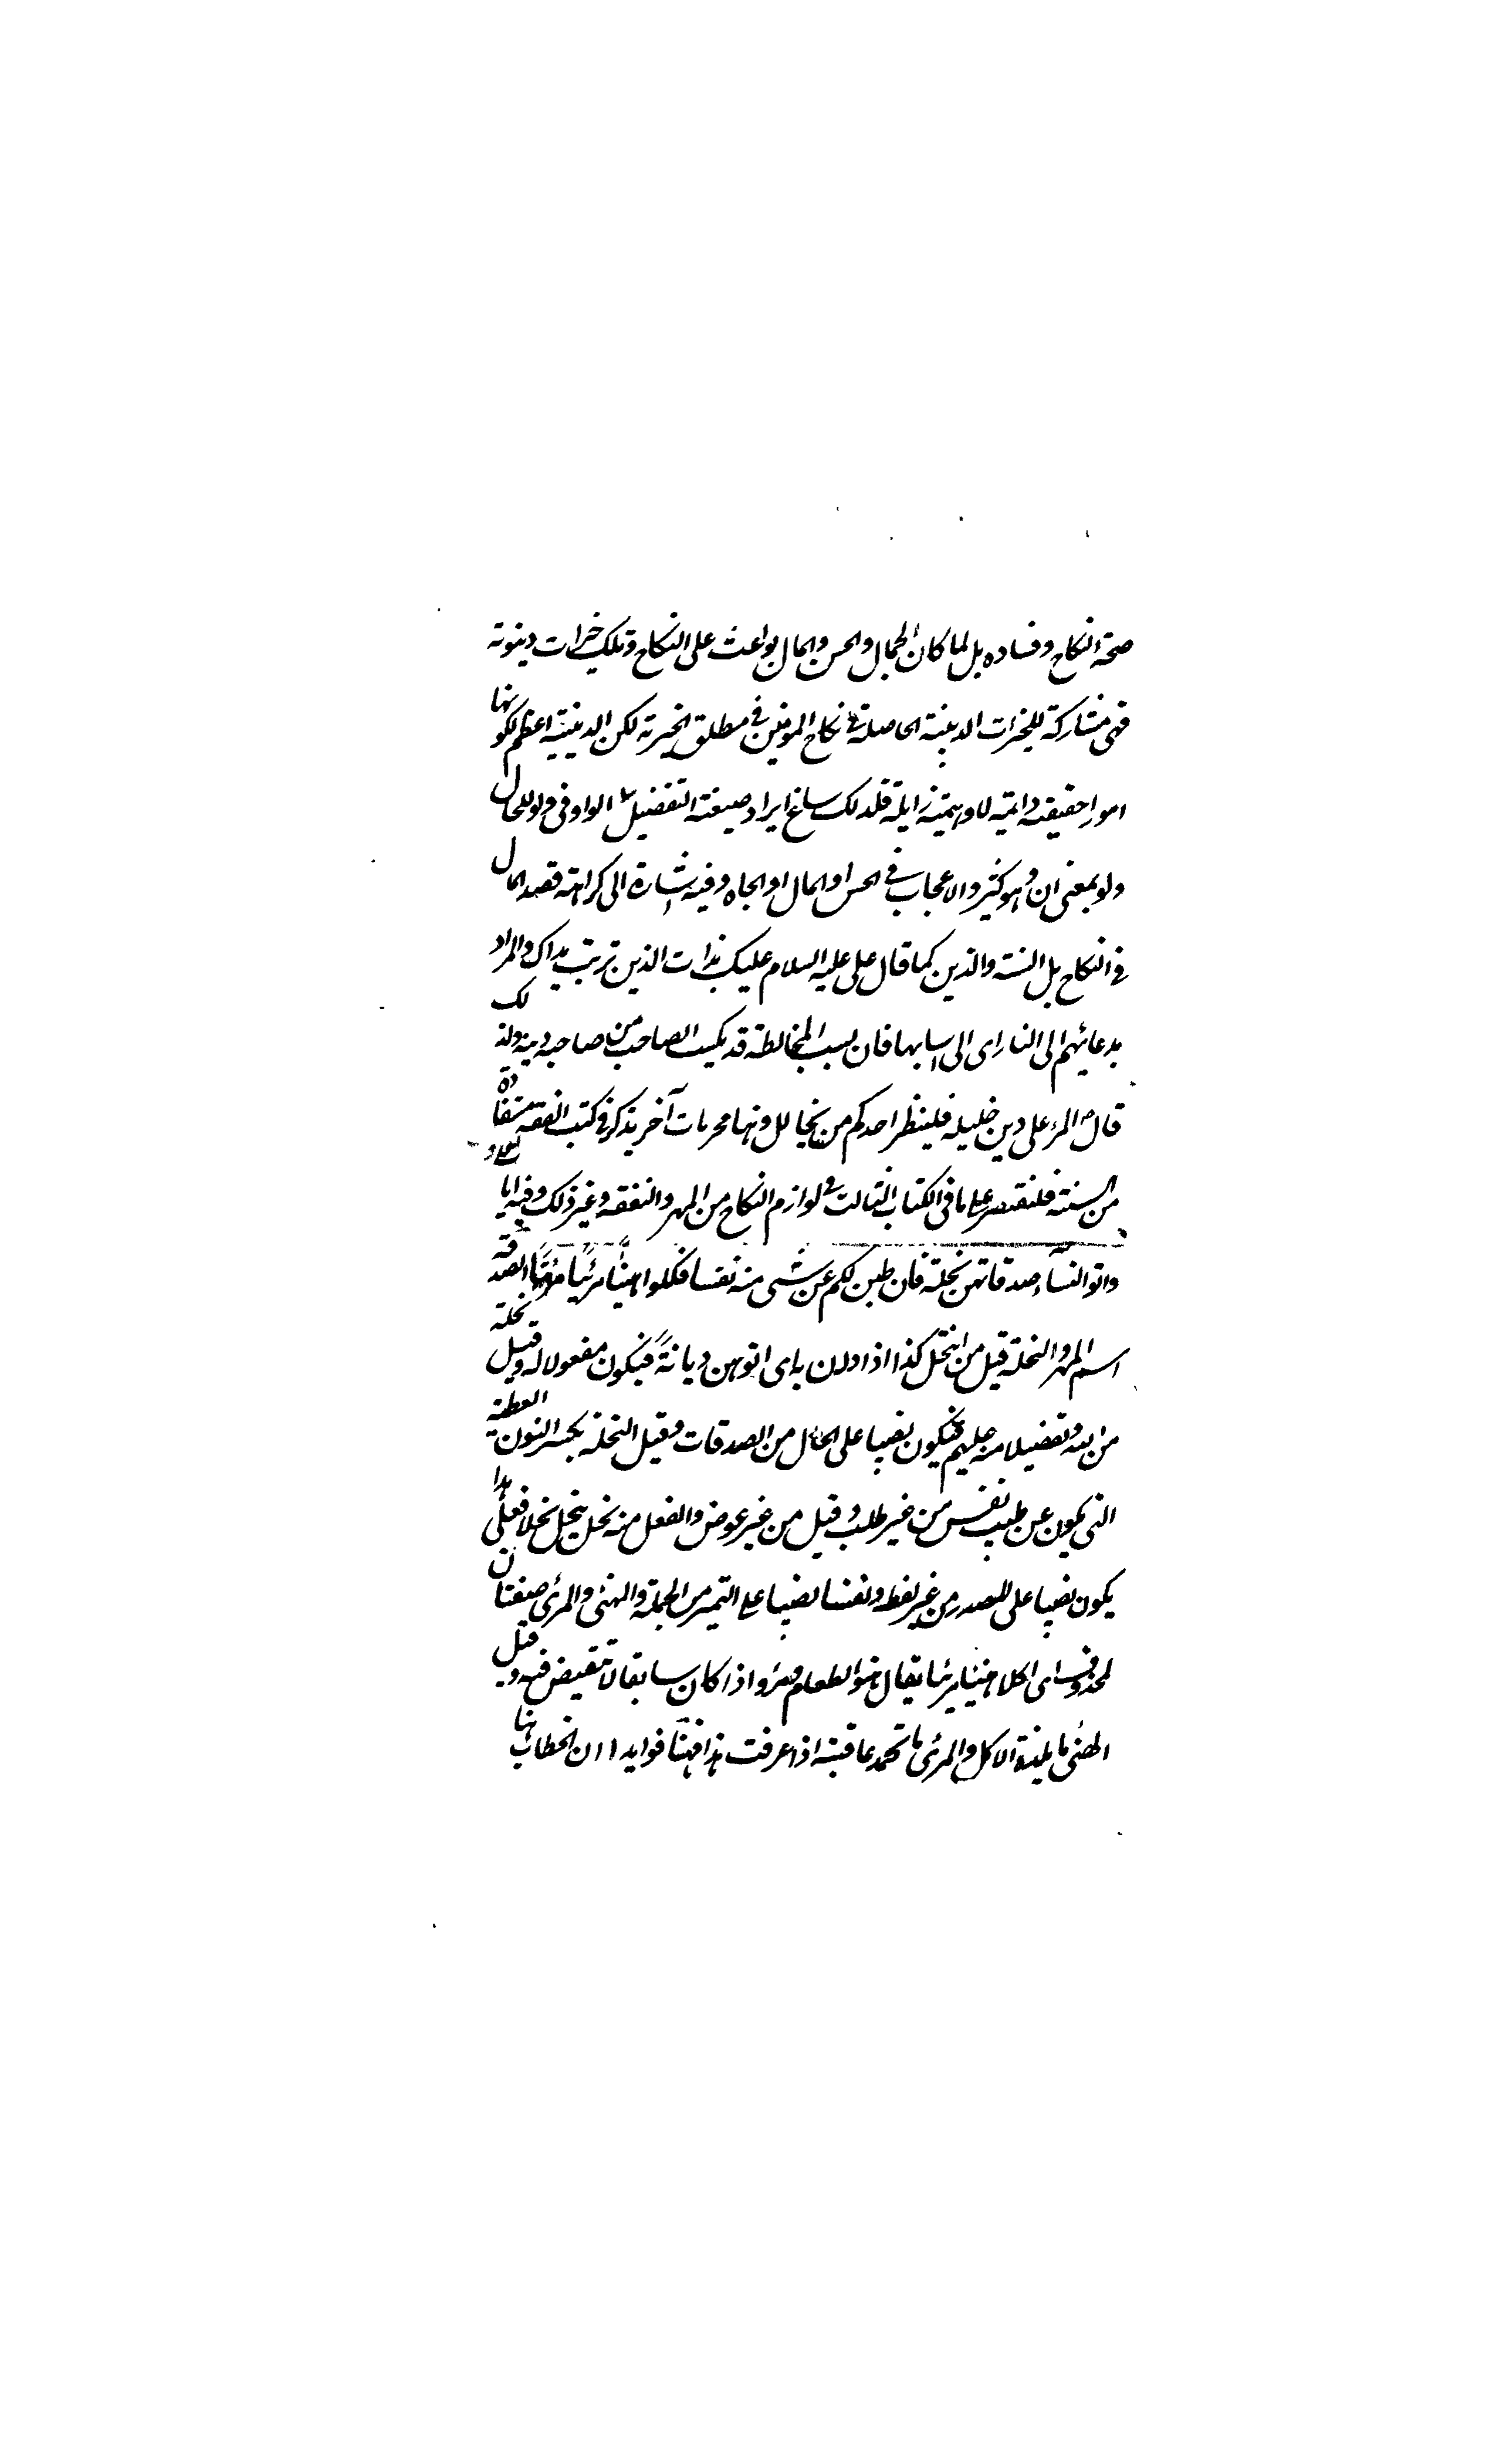 صحة النكاح وفساده بل لما كان الجمال والحسن والمال بواعث على النكاح وتلك خيرات دنيوية
فهى مشاركة للخيرات الدينية الحاصلة فى نكاح المؤمنين فى مطلق الخيرية لكن الدينية اعظم لكونها
امورا حقيقية دائمية لا وهمية زايلة فلذلك ساغ ايراد صيغة التفضيل الواو فى ولو للحال
ولو بمعنى ان وهو كثير والاعجاب فى الحسن او المال او الجاه وفيه اشارة الى كراهة قصد المال
فى النكاح بل السنة والدين كما قال على عليه السلام عليك بذات الدين تربت يداك والمراد
بدعائهم الى النار اى الى اسبابها فان بسبب المخالطة قد يكسب الصاحب من صاحبه دينه ولذلك
قال المرء على دين خليله فلينظر احدكم من يخالل ومنها محرمات آخر يذكر فى كتب الفقه مستفادة
من السنة فلنقتصر على ما فى الكتاب الثالث فى لوازم النكاح من المهر والنفقه وغير ذلك وفيه ايات
واتوا النساء صدقاتهن نحلة فان طبن لكم عن شىء منه نفسا فكلوا هنيئا مريئا الصدقة
اسم المهر والنحلة قيل من انتحل كذا اذا دان به اى اتوهن ديانة فيكون مفعولا له وقيل نحلة
من الله وتفضيلا منه عليهم فيكون نصبا على الحال من الصدقات وقيل النحلة بكسر النون العطية
التى يكون عن طيب نفس من غير طلب وقيل من غير عوض والفعل منه نحل ينحل نحلا فعلى هذا
يكون نصبا على المصدر من غير لفظه ونفسا نصبا على التميز من الجملة والهنى والمرئ صفتان
لمحذوف اى اكلا هنيئا مريئا يقال هنؤ الطعام ومرؤ اذا كان سابغا لا تنغيص فيه وقيل
الهنئ ما يلذه الاكل والمرئ ما تحمد عاقبته اذا عرفت هذا فهنا فوايد ا ان الخطاب هنا